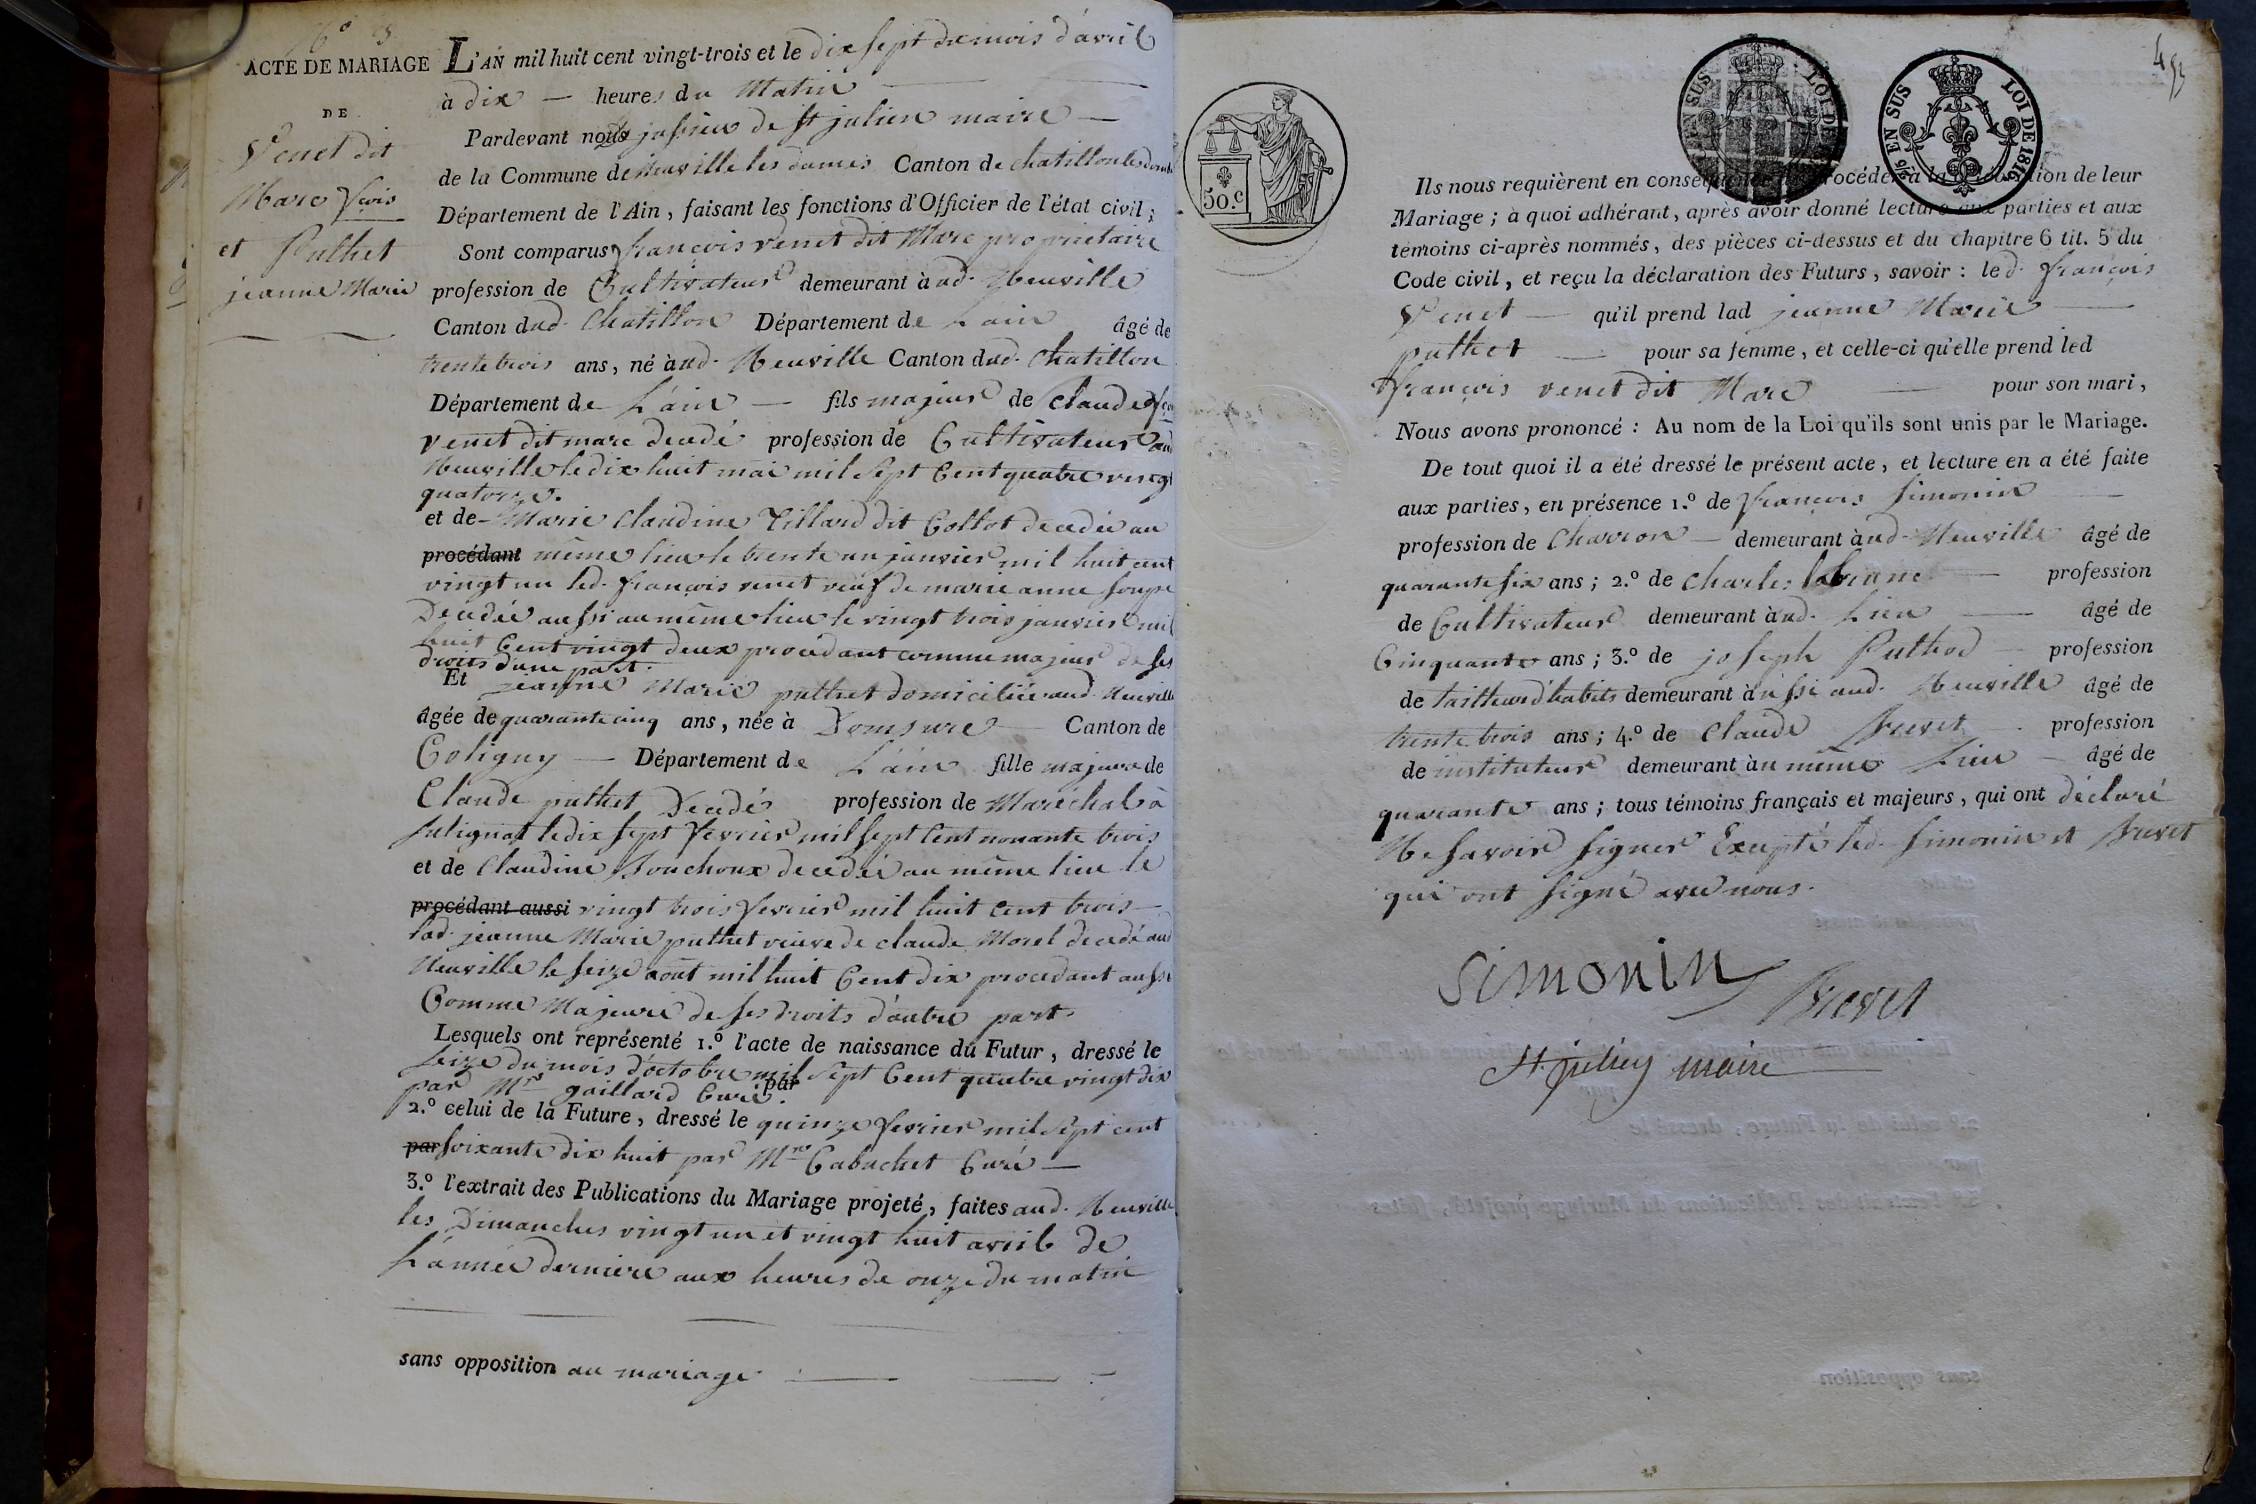 N° 8
ACTE DE MARIAGE
DE
Venet dit
Marc fçois
et Puthet
jeanne Marie
L'AN mil huit cent vingt-trois et le dix sept du mois d'avril
à dix — heures du Matin
Pardevant nous jussieu de St julien maire —
de la Commune de Neuville les dames Canton de chatillon les dombes
Département de l'Ain, faisant les fonctions d'Officier de l'état civil;
Sont comparus françois venet dit Marc propriétaire
profession de Cultivateur demeurant à ud. Neuville
Canton dud. Chatillon Département de L'ain âgé de
trente trois ans, né à ud. Neuville Canton dud. Chatillon
Département de L'ain — fils majeur de Claude fçois
venet dit marc decedé profession de Cultivateur aud
Neuville le dix huit mai mil sept Cent quatre vingt
quatorze.
et de Marie Claudine Tillard dit Collot decedée au
procédant même lieu le trente un janvier mil huit cent
vingt un led. françois venet veuf de marie anne soupe
Decedée aussi au même lieu le vingt trois janvier mil
huit Cent vingt deux procedant comme majeur de ses
droits d'une part.
Et jeanne Marie puthet domiciliée aud. Neuville
âgée de quarante cinq ans, née à Domsure — Canton de
Coligny — Département de L'ain fille majeure de
Claude puthet Decedé profession de Maréchal à
Salignat le dix sept fevrier mil sept Cent nonante trois
et de Claudine Bouchoux decedée au même lieu le
procédant aussi vingt trois fevrier mil huit Cent trois —
lad. jeanne Marie puthet veuve de claude Morel decedé aud
Neuville le seize août mil huit Cent dix procedant aussi
Comme Majeure de ses droits d'autre part.
Lesquels ont représenté 1.º l'acte de naissance du Futur, dressé le
seize du mois d'octobre mil sept Cent quatre vingt dix
par Mre gaillard Curé. par
2.º celui de la Future, dressé le quinze fevrier mil sept cent
par soixante dix huit par Mre Cabuchet Curé —
3.º l'extrait des Publications du Mariage projeté, faites aud. Neuville
les Dimanches vingt un et vingt huit avril de
L'année derniere aux heures de onze du matin
sans opposition au mariage
50.c
5/6 EN SUS LOI DE 1816
Ils nous requièrent en conséquence de procéder à la célébration de leur
Mariage; à quoi adhérant, après avoir donné lecture aux parties et aux
témoins ci-après nommés, des pièces ci-dessus et du chapitre 6 tit. 5 du
Code civil, et reçu la déclaration des Futurs, savoir: led. françois
Venet — qu'il prend lad jeanne Marie
puthet — pour sa femme, et celle-ci qu'elle prend led
françois venet dit Marc pour son mari,
Nous avons prononcé: Au nom de la Loi qu'ils sont unis par le Mariage.
De tout quoi il a été dressé le présent acte, et lecture en a été faite
aux parties, en présence 1.º de françois Simonin
profession de Charron — demeurant à ud. Neuville âgé de
quarante six ans; 2.º de Charles — profession
de Cultivateur demeurant à ud. Lieu — âgé de
Cinquante ans; 3.º de joseph Puthod — profession
de tailleur d'habits demeurant à ussi aud. Neuville âgé de
trente trois ans; 4.º de Claude Brevet profession
de instituteur demeurant à u même Lieu — âgé de
quarante ans; tous témoins français et majeurs, qui ont déclaré
Ne savoir signer Excepté led. Simonin et Brevet
qui ont signé avec nous.
Simonin
Brevet
St. julien maire